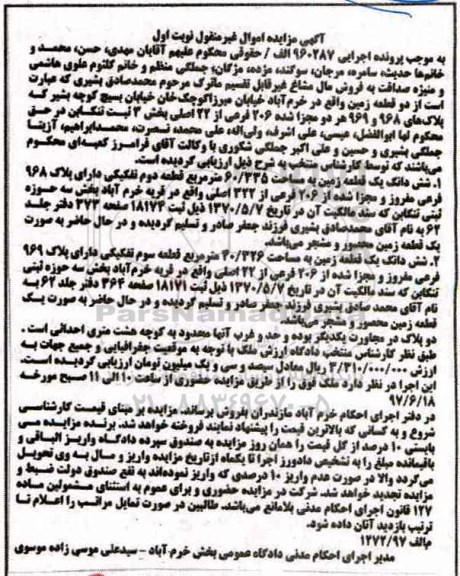 آگهی مزایده اموال غیرمنقول نوبت اول
به موجب پرونده اجرایی ۹۶۰۲۸۷ الف / حقوقی محکوم علیهم آقایان مهدی، حسن، محمد و
خانم‌ها حدیثه، سامره، مرجان، سوگند، مژده، مژگان؛ جملگی منظم و خانم کلثوم علوی هاشمی
و منیژه صداقت به فروش مال مشاع غیرقابل تقسیم ماترک مرحوم محمدصادق بشیری که عبارت
است از دو قطعه زمین واقع در خرم‌آباد خیابان میرزاکوچک‌خان خیابان بسیج کوچه بشیر که
پلاک‌های ۹۶۸ و ۹۶۹ هر دو مجزا شده ۲۰۶ فرعی از ۲۲ اصلی بخش ۳ ثبت تنکابن در حق
محکوم لها ابوالفضل، عیسی، علی اشرف، ولی‌الله، علی محمد، نصرت، محمدابراهیم، آزیتا
جملگی بشیری و حسین و علی اکبر جملگی شکوری با وکالت آقای فرامرز کعبه‌ای محکوم
می‌باشند که توسط کارشناس منتخب به شرح ذیل ارزیابی گردیده است.
۱. شش دانگ یک قطعه زمین به مساحت ۶۰/۳۳۵ مترمربع قطعه دوم تفکیکی دارای پلاک ۹۶۸
فرعی مفروز و مجزا شده از ۲۰۶ فرعی از ۲۲ اصلی واقع در قریه خرم آباد بخش سه حوزه
ثبتی تنکابن که سند مالکیت آن در تاریخ ۱۳۷۰/۵/۷ ذیل ثبت ۱۸۱۷۴ صفحه ۳۷۳ دفتر جلد
۶۲ به نام آقای محمدصادق بشیری فرزند جعفر صادر و تسلیم گردیده و در حال حاضر به صورت
یک قطعه زمین محصور و مشجر می‌باشد.
۲. شش دانگ یک قطعه زمین به مساحت ۴۰/۳۲۶ مترمربع قطعه سوم تفکیکی دارای پلاک ۹۶۹
فرعی مفروز و مجزا شده از ۲۰۶ فرعی از ۲۲ اصلی واقع در قریه خرم‌آباد بخش سه حوزه ثبتی
تنکابن که سند مالکیت آن در تاریخ ۱۳۷۰/۵/۷ ذیل ثبت ۱۸۱۷۱ صفحه ۳۶۴ دفتر جلد ۶۲ به
نام آقای محمد صادق بشیری فرزند جعفر صادر و تسلیم گردیده و در حال حاضر به صورت یک
قطعه زمین محصور و مشجر می‌باشد.
دو پلاک در مجاورت یکدیگر بوده و حد و غرب آنها محدود به کوچه هشت متری احداثی است.
طبق نظر کارشناس منتخب دادگاه ارزش ملک با توجه به موقعیت جغرافیایی و جمیع جهات به
ارزش ۳/۳۱۰/۰۰۰/۰۰۰ ریال معادل سیصد و سی و یک میلیون تومان ارزیابی گردیده است.
این اجرا در نظر دارد ملک فوق را از طریق مزایده حضوری از ساعت ۱۰ الی ۱۱ صبح مورخه
۹۷/۶/۱۸
در دفتر اجرای احکام خرم آباد مازندران بفروش برساند. مزایده بر مبنای قیمت کارشناسی
شروع و به کسانی که بالاترین قیمت را پیشنهاد نمایند فروخته خواهد شد. برنده مزایده می
بایستی ۱۰ درصد از کل قیمت را همان روز مزایده به صندوق سپرده دادگاه واریز الباقی و
باقیمانده مبلغ را به تشخیص دادورز اجرا تا یکماه ازتاریخ مزایده واریز و مال به وی تحویل
می‌گردد والا در صورت عدم واریز ۱۰ درصدی که واریز نموده‌اند به نفع صندوق دولت ضبط و
مزایده تجدید خواهد شد. شرکت در مزایده حضوری و برای عموم به استثنای مشمولین ماده
۱۲۷ قانون اجرای احکام مدنی بلامانع می‌باشد. طالبین در صورت تمایل مراتب را اعلام تا
ترتیب بازدید آنان داده شود.
م‌الف ۱۲۷۲/۹۷
مدیر اجرای احکام مدنی دادگاه عمومی بخش خرم‌آباد – سیدعلی موسی زاده موسوی